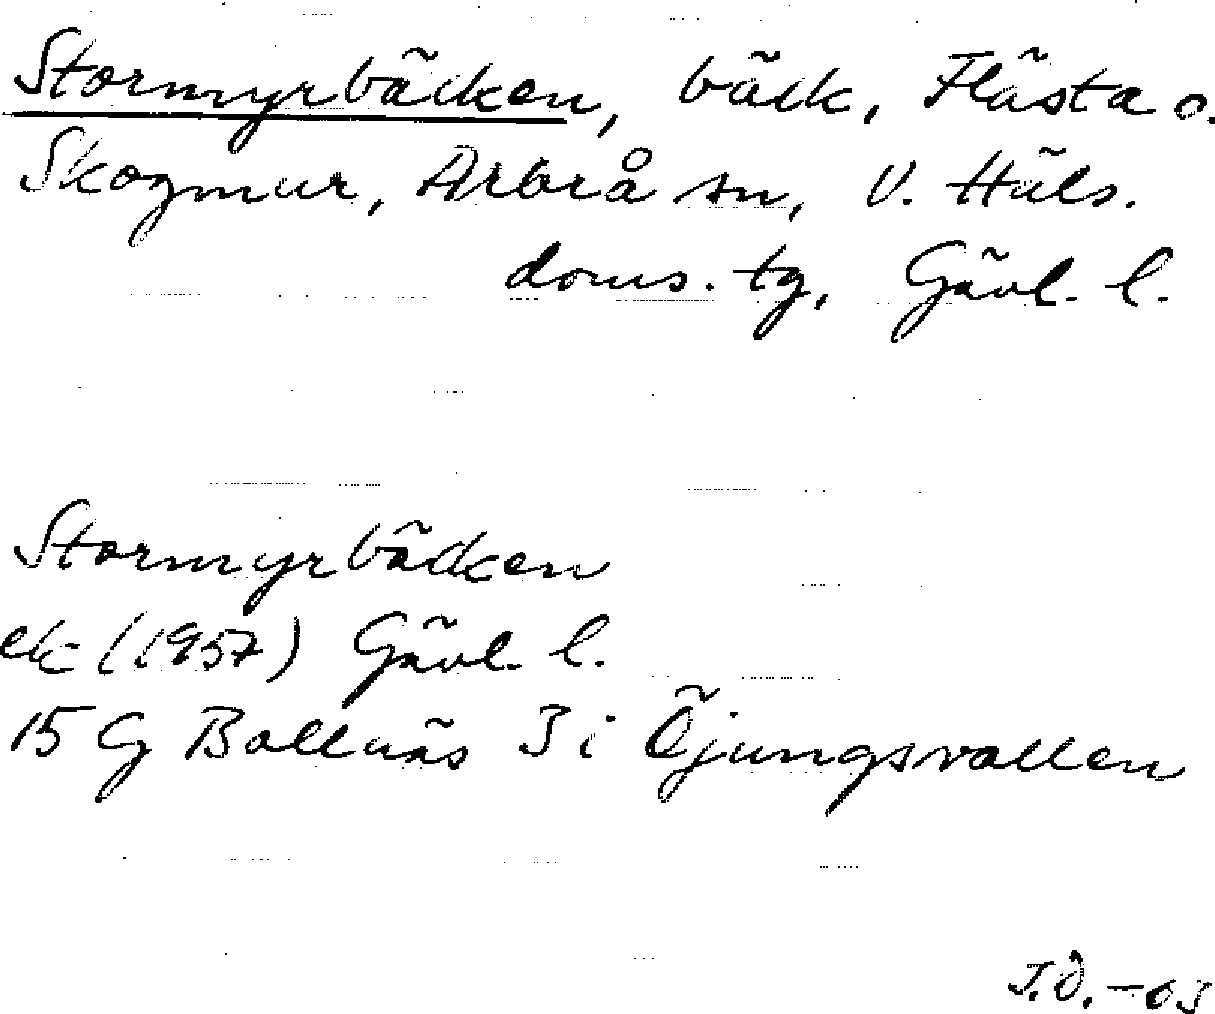 Stormyrbäcken, bäck, Flästa o.
Skogmur, Arbrå sn, V. Häls.
doms. tg, Gävl. l.
Stormyrbäcken
ek (1957) Gävl. l.
15 G Bollnäs 3 i Öjungsvallen
J.Ö. -03